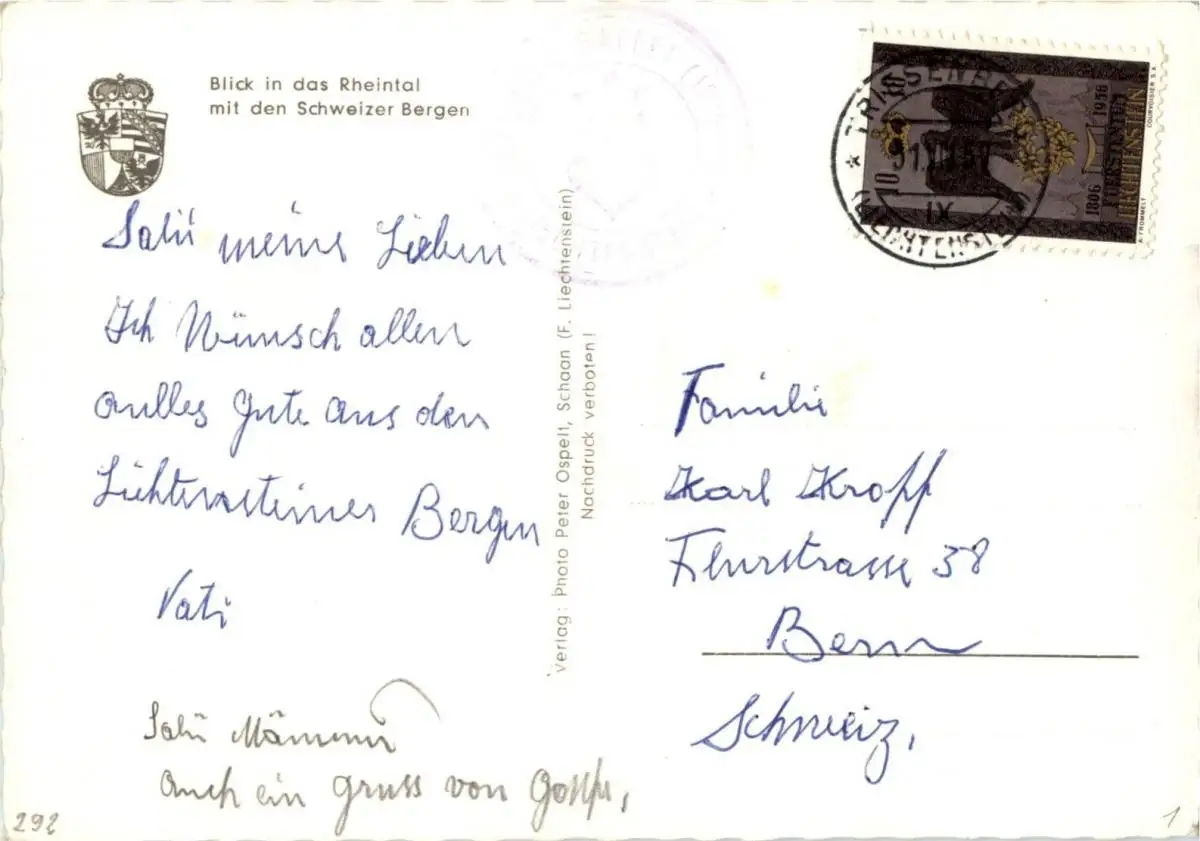 Blick in das Rheintal
mit den Schweizer Bergen
Salü meine Lieben
Ich Wünsch allen
aulles Gute aus den
Lichtensteiner Bergen
Vati
Salü Mämmi
auch ein gruss von
Verlag: Photo Peter Ospelt, Schaan (F. Liechtenstein)
Nachdruck verboten!
10
1806 1956
FÜERSTENTUM
LIECHTENSTEIN
A. FROMMELT
COURVOISIER S.A.
TRIESENBERG
(LIECHTENSTEIN)
Familie
Karl Kropf
Flurstrasse 38
Bern
Schweiz,
292
1